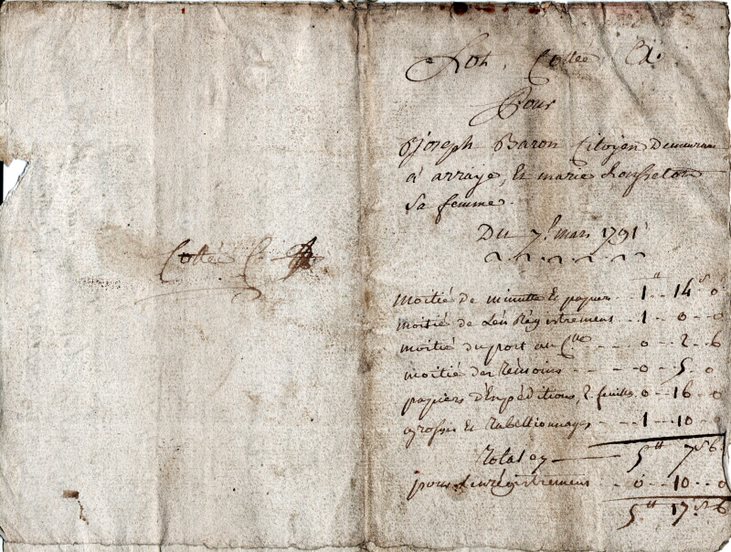 Cottée C.
Not, Cottée A.
Pour
Joseph Baron Citoyen Demeuran
à arraye, Et marie
Sa femme.
Du 7e mars 1791
moitié de minutte Et papier - 1tt - 14s - 0
moitié de L'En Régistrement - 1 - 0 - 0
moitié du port au C.lle - - 0 - 2 - 6
moitié des Témoins - - - 0 - 5 - 0
papiers d'Expéditions, 2 feuilles 0 - 16 - 0
grosses Et Tabellionnages - - 1 - 10 - 0
Total 5tt 7s 6
pour L'enrégistrement - 0 - 10 - 0
5tt 17s 6